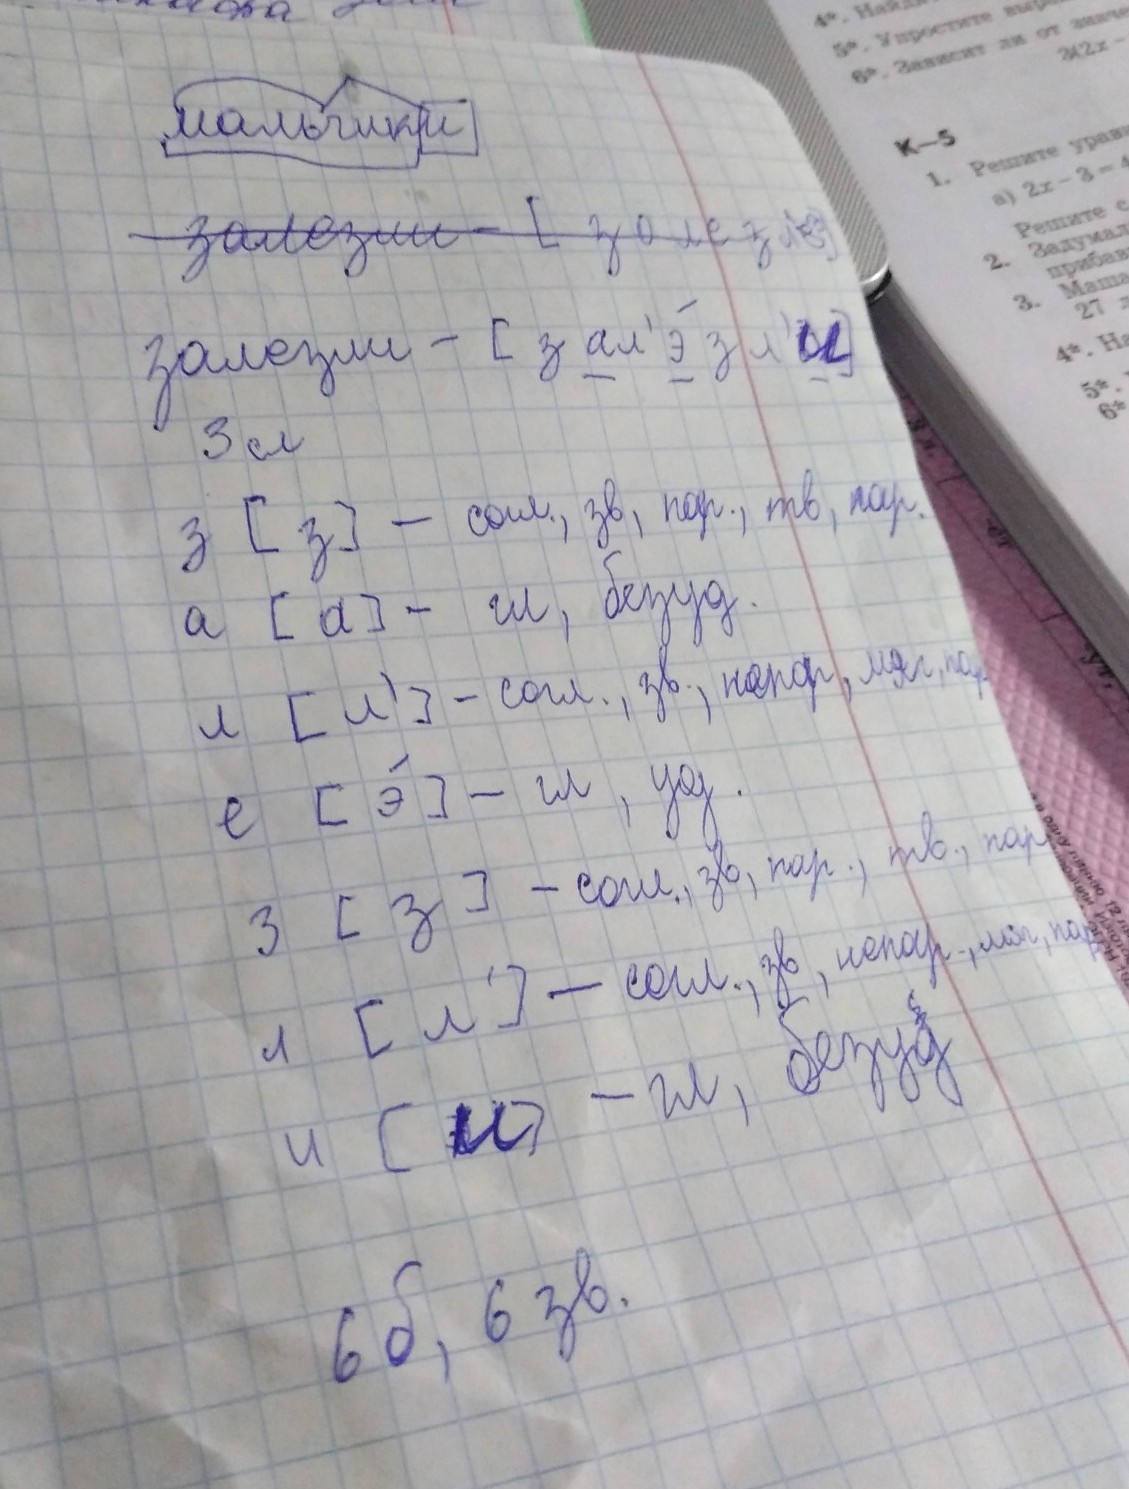 мальчики
залезли - [ з о л е з л
залезли - [ з а л' э́ з л' и ]
3 сл
з [ з ] - согл., зв, пар., тв, пар.
а [ а ] - гл, безуд.
л [ л' ] - согл., зв., непар, мяг, пар
е [ э́ ] - гл, уд.
з [ з ] - согл., зв, пар., тв., пар
л [ л' ] - согл., зв, непар., мяг, пар
и [ и ] - гл, безуд
6 б, 6 зв.
4*. Найди
5*. Упростите выра
6*. Зависит ли от значе
3(2x -
К—5
1. Решите уравн
а) 2x - 3 = 4
Решите с
2. Задумал
прибав
3. Маша
27 л
4*. На
5*.
6*